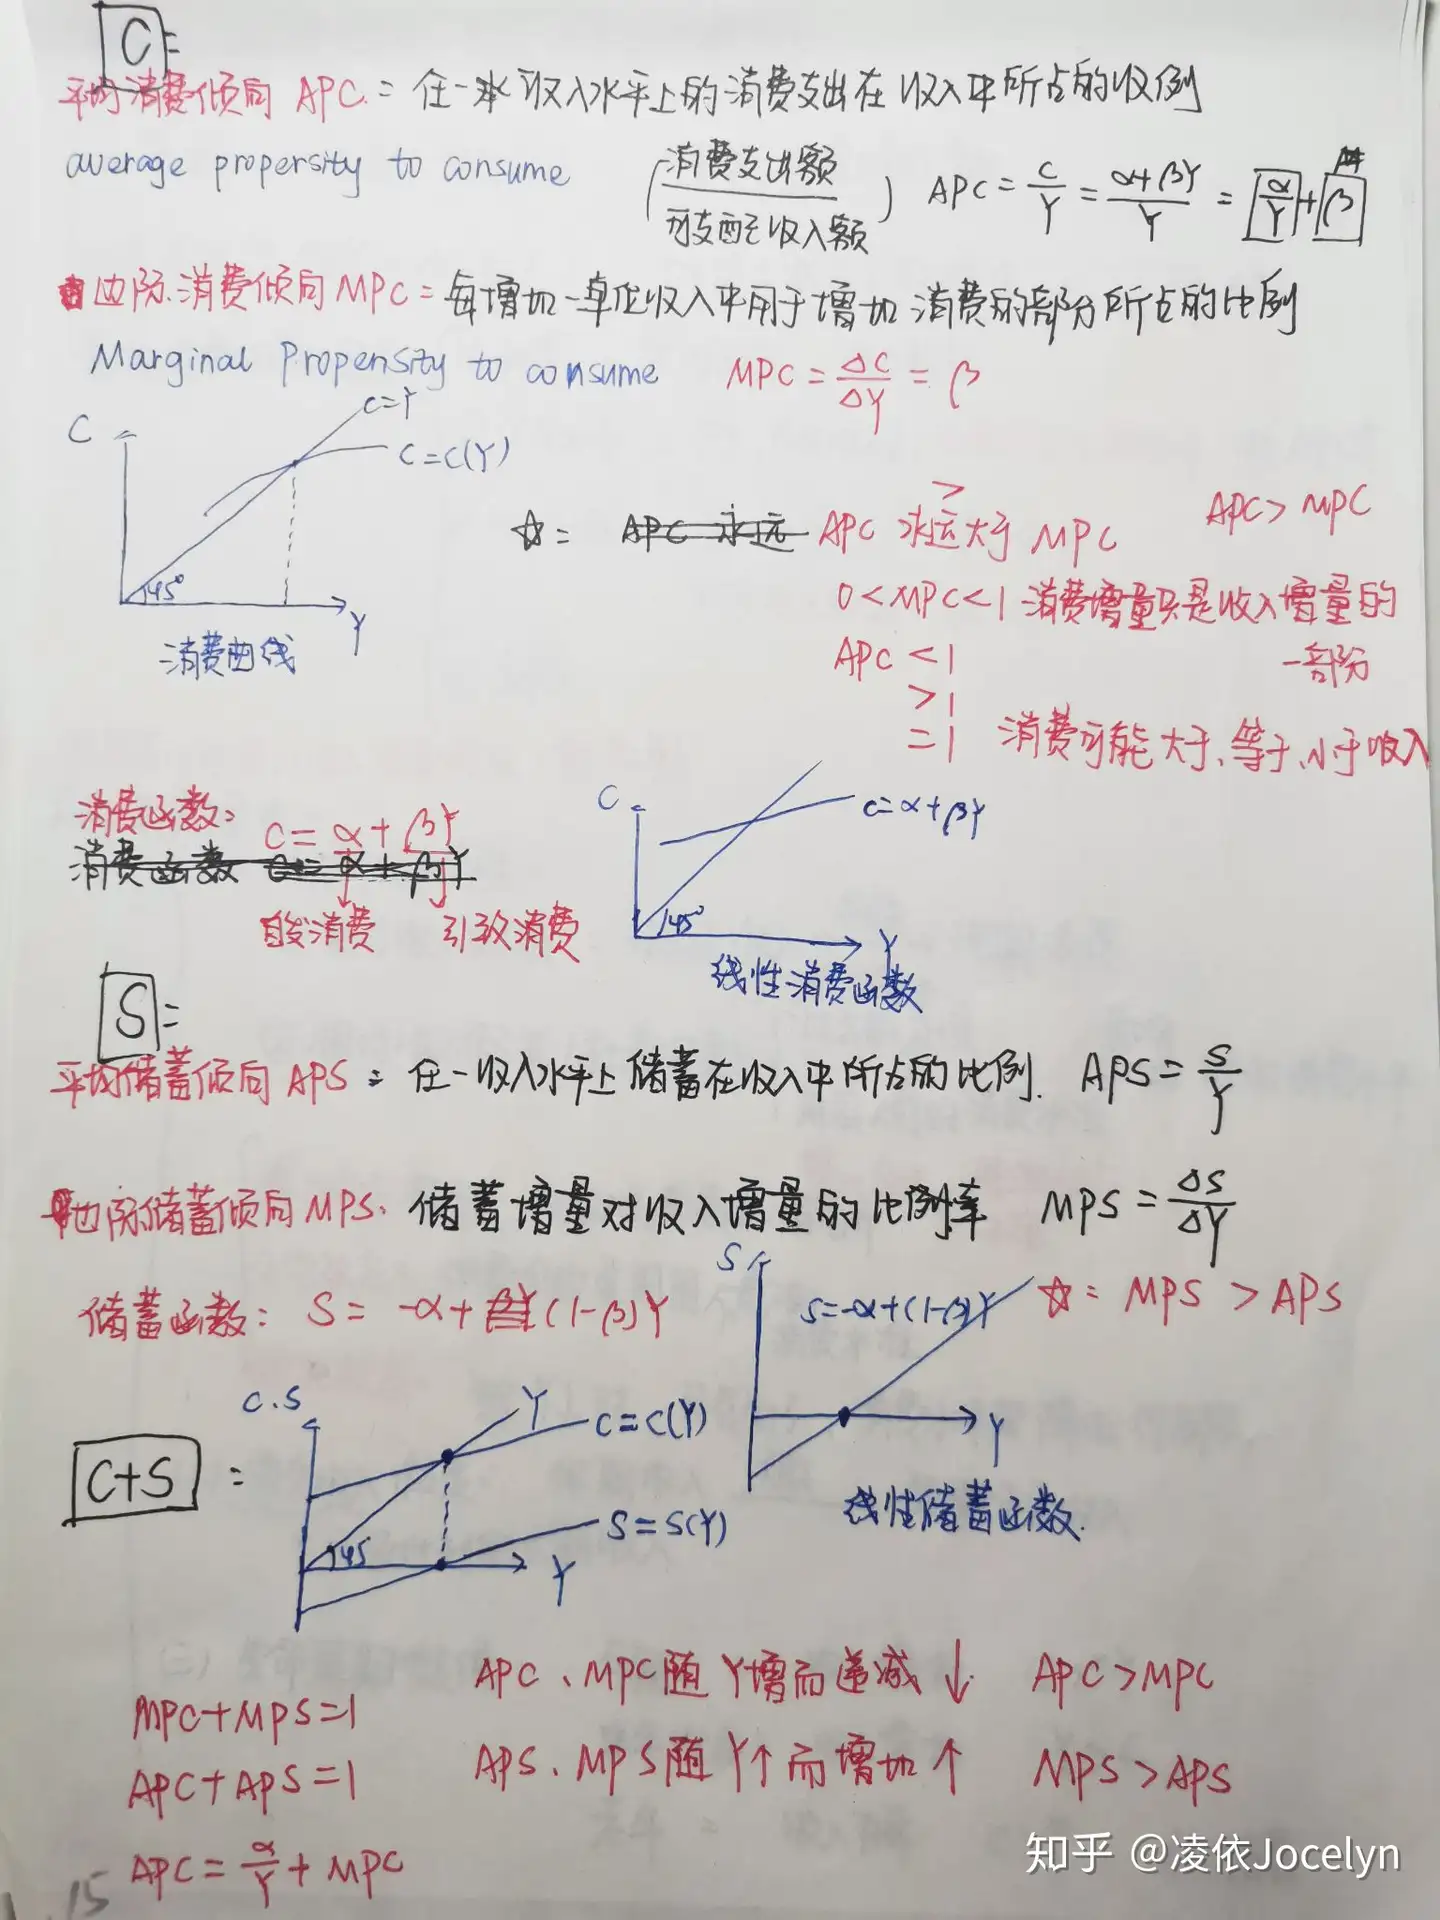 C =
平均消费倾向 APC = 任一收入水平上的消费支出在收入中所占的比例
average propersity to consume (消费支出额/可支配收入额) APC = C/Y = α+βY/Y = α/Y + β
边际消费倾向 MPC = 每增加一单位收入中用于增加消费的部分所占的比例
Marginal Propensity to consume MPC = ΔC/ΔY = β
C C=Y C=C(Y) 45° Y
消费曲线
☆= APC 永远 APC 永远大于 MPC > APC > MPC
0 < MPC < 1 消费增量只是收入增量的一部分
APC < 1
> 1
= 1 消费可能大于、等于、小于收入
消费函数: C = α + βY
消费函数 C = α + βY
自发消费 引致消费
C C=α+βY 45° Y
线性消费函数
S =
平均储蓄倾向 APS = 任一收入水平上储蓄在收入中所占的比例. APS = S/Y
边际储蓄倾向 MPS. 储蓄增量对收入增量的比率 MPS = ΔS/ΔY
储蓄函数: S = -α + (1-β)Y
S S=-α+(1-β)Y Y
☆= MPS > APS
线性储蓄函数.
C+S =
C.S Y C=C(Y) S=S(Y) 45 Y
MPC+MPS=1
APC、MPC随Y增而递减↓ APC>MPC
APC+APS=1
APS、MPS随Y↑而增加↑ MPS>APS
APC = α/Y + MPC
15
知乎 @凌依Jocelyn